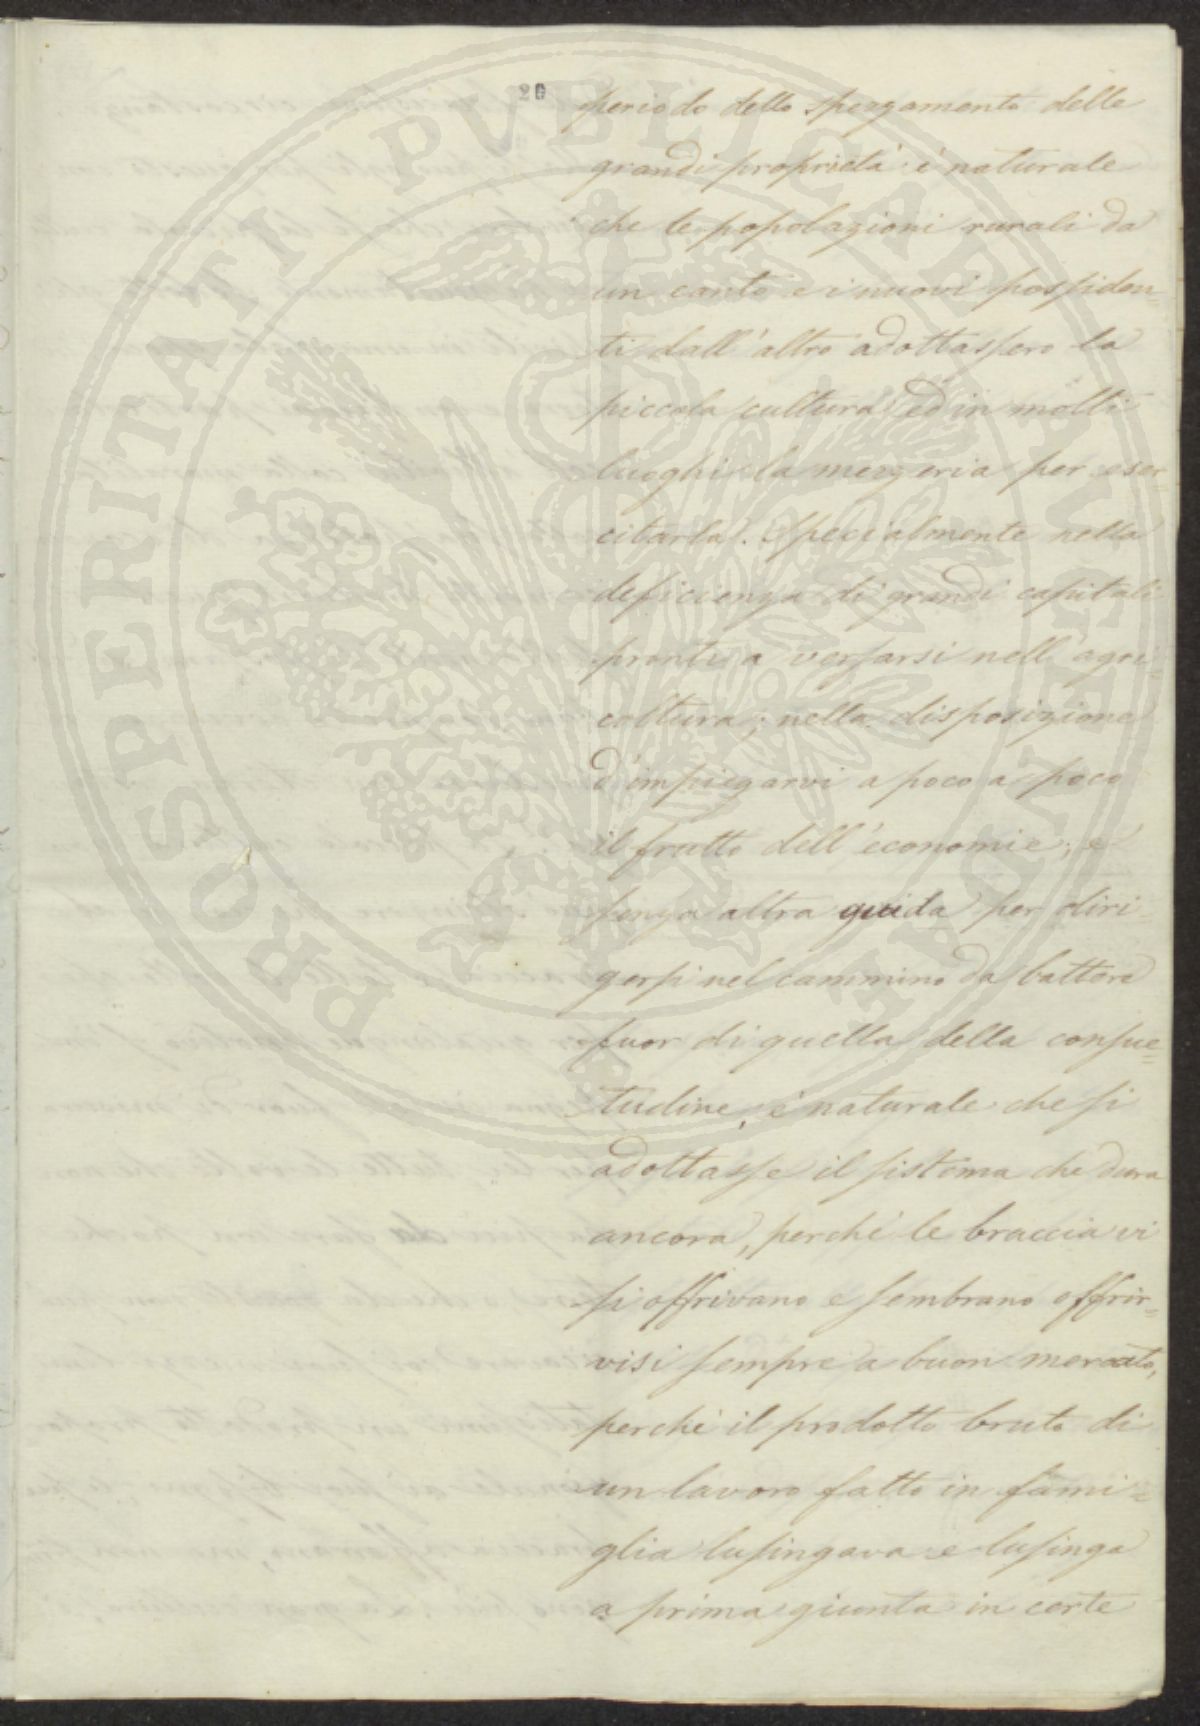 20
periodo dello spezzamento delle
grandi proprietà è naturale
che le popolazioni rurali da
un canto e i nuovi possiden=
ti dall'altro adottassero la
piccola cultura ed in molti
luoghi la mezzeria per eser=
citarla. Specialmente nella
deficienza di grandi capitali
pronti a versarsi nell'agri=
coltura; nella disposizione
d'impiegarvi a poco a poco
il frutto dell'economie; e
senza altra guida per diri=
gersi nel cammino da battere
fuor di quella della consue=
tudine, è naturale che si
adottasse il sistema che dura
ancora, perché le braccia vi
si offrivano e sembrano offrir=
visi sempre a buon mercato,
perché il prodotto bruto di
un lavoro fatto in fami=
glia lusingava e lusinga
a prima giunta in certe
PROSPERITATI PUBLICAE AUGENDAE